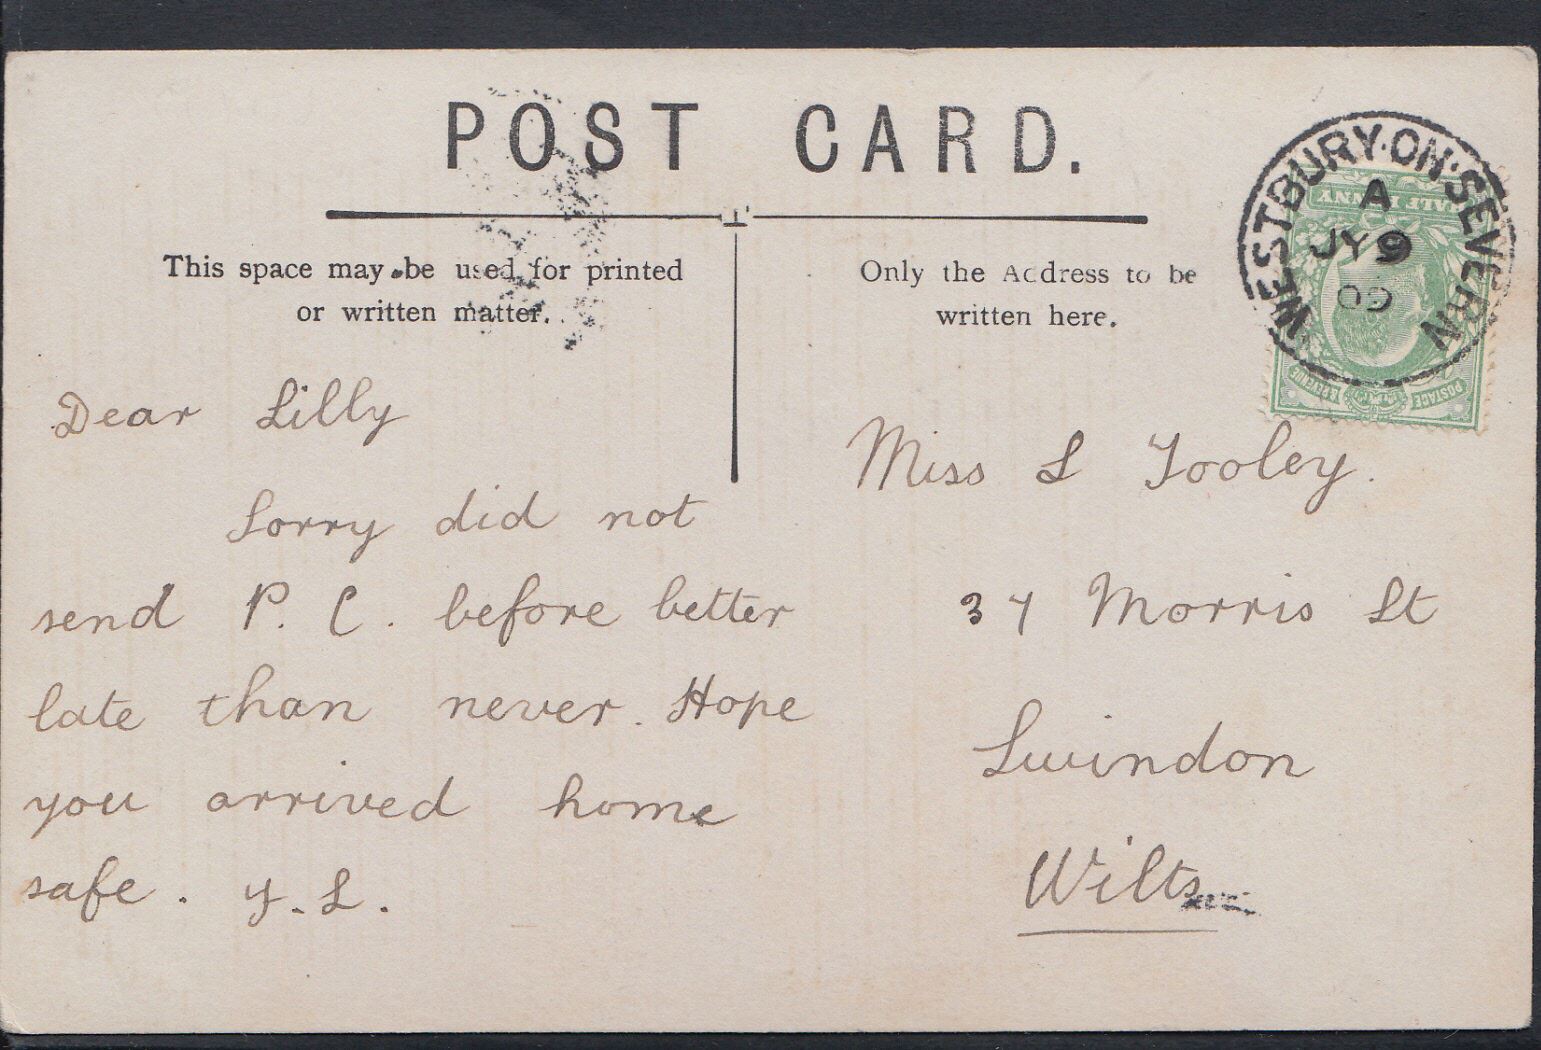 POST CARD.
This space may be used for printed
or written matter.
Only the Address to be
written here.
WESTBURY·ON·SEVERN
A
JY 9
09
HALF PENNY
POSTAGE REVENUE
Dear Lilly
Sorry did not
send P. C. before better
late than never. Hope
you arrived home
safe. Y. L.
Miss L Tooley.
37 Morris St
Swindon
Wilts